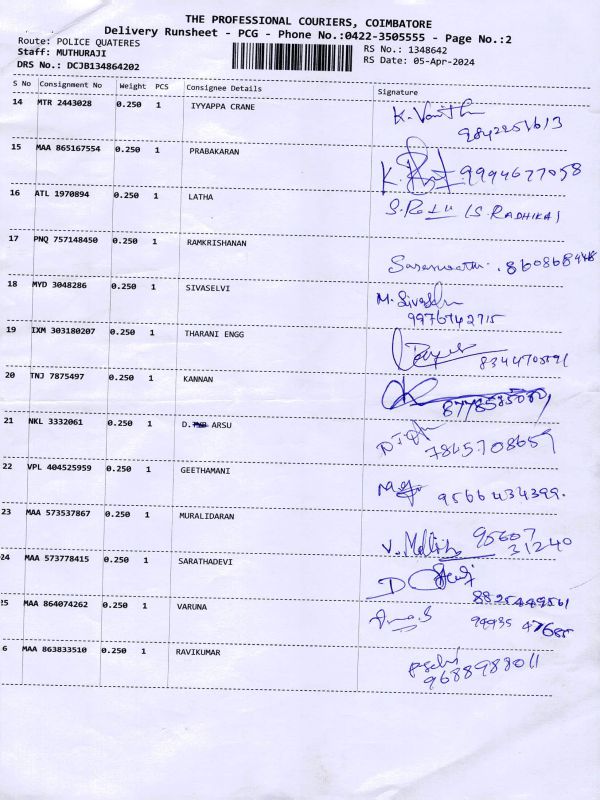 THE PROFESSIONAL COURIERS, COIMBATORE
Delivery Runsheet - PCG - Phone No.:0422-3505555 - Page No.:2
Route: POLICE QUATERES
RS No.: 1348642
Staff: MUTHURAJI
RS Date: 05-Apr-2024
DRS No.: DCJB134864202
S No Consignment No Weight PCS Consignee Details Signature
14 MTR 2443028 0.250 1 IYYAPPA CRANE
15 MAA 865167554 0.250 1 PRABAKARAN 9994677058
16 ATL 1970894 0.250 1 LATHA (S. RADHIKA)
17 PNQ 757148450 0.250 1 RAMKRISHANAN
18 MYD 3048286 0.250 1 SIVASELVI
9976742715
19 IXM 303180207 0.250 1 THARANI ENGG
20 TNJ 7875497 0.250 1 KANNAN
21 NKL 3332061 0.250 1 D. ARSU
7845708659
22 VPL 404525959 0.250 1 GEETHAMANI
9566434399.
23 MAA 573537867 0.250 1 MURALIDARAN 95607
31240
24 MAA 573778415 0.250 1 SARATHADEVI
8825449561
25 MAA 864074262 0.250 1 VARUNA 94935 47685
6 MAA 863833510 0.250 1 RAVIKUMAR
9688988011